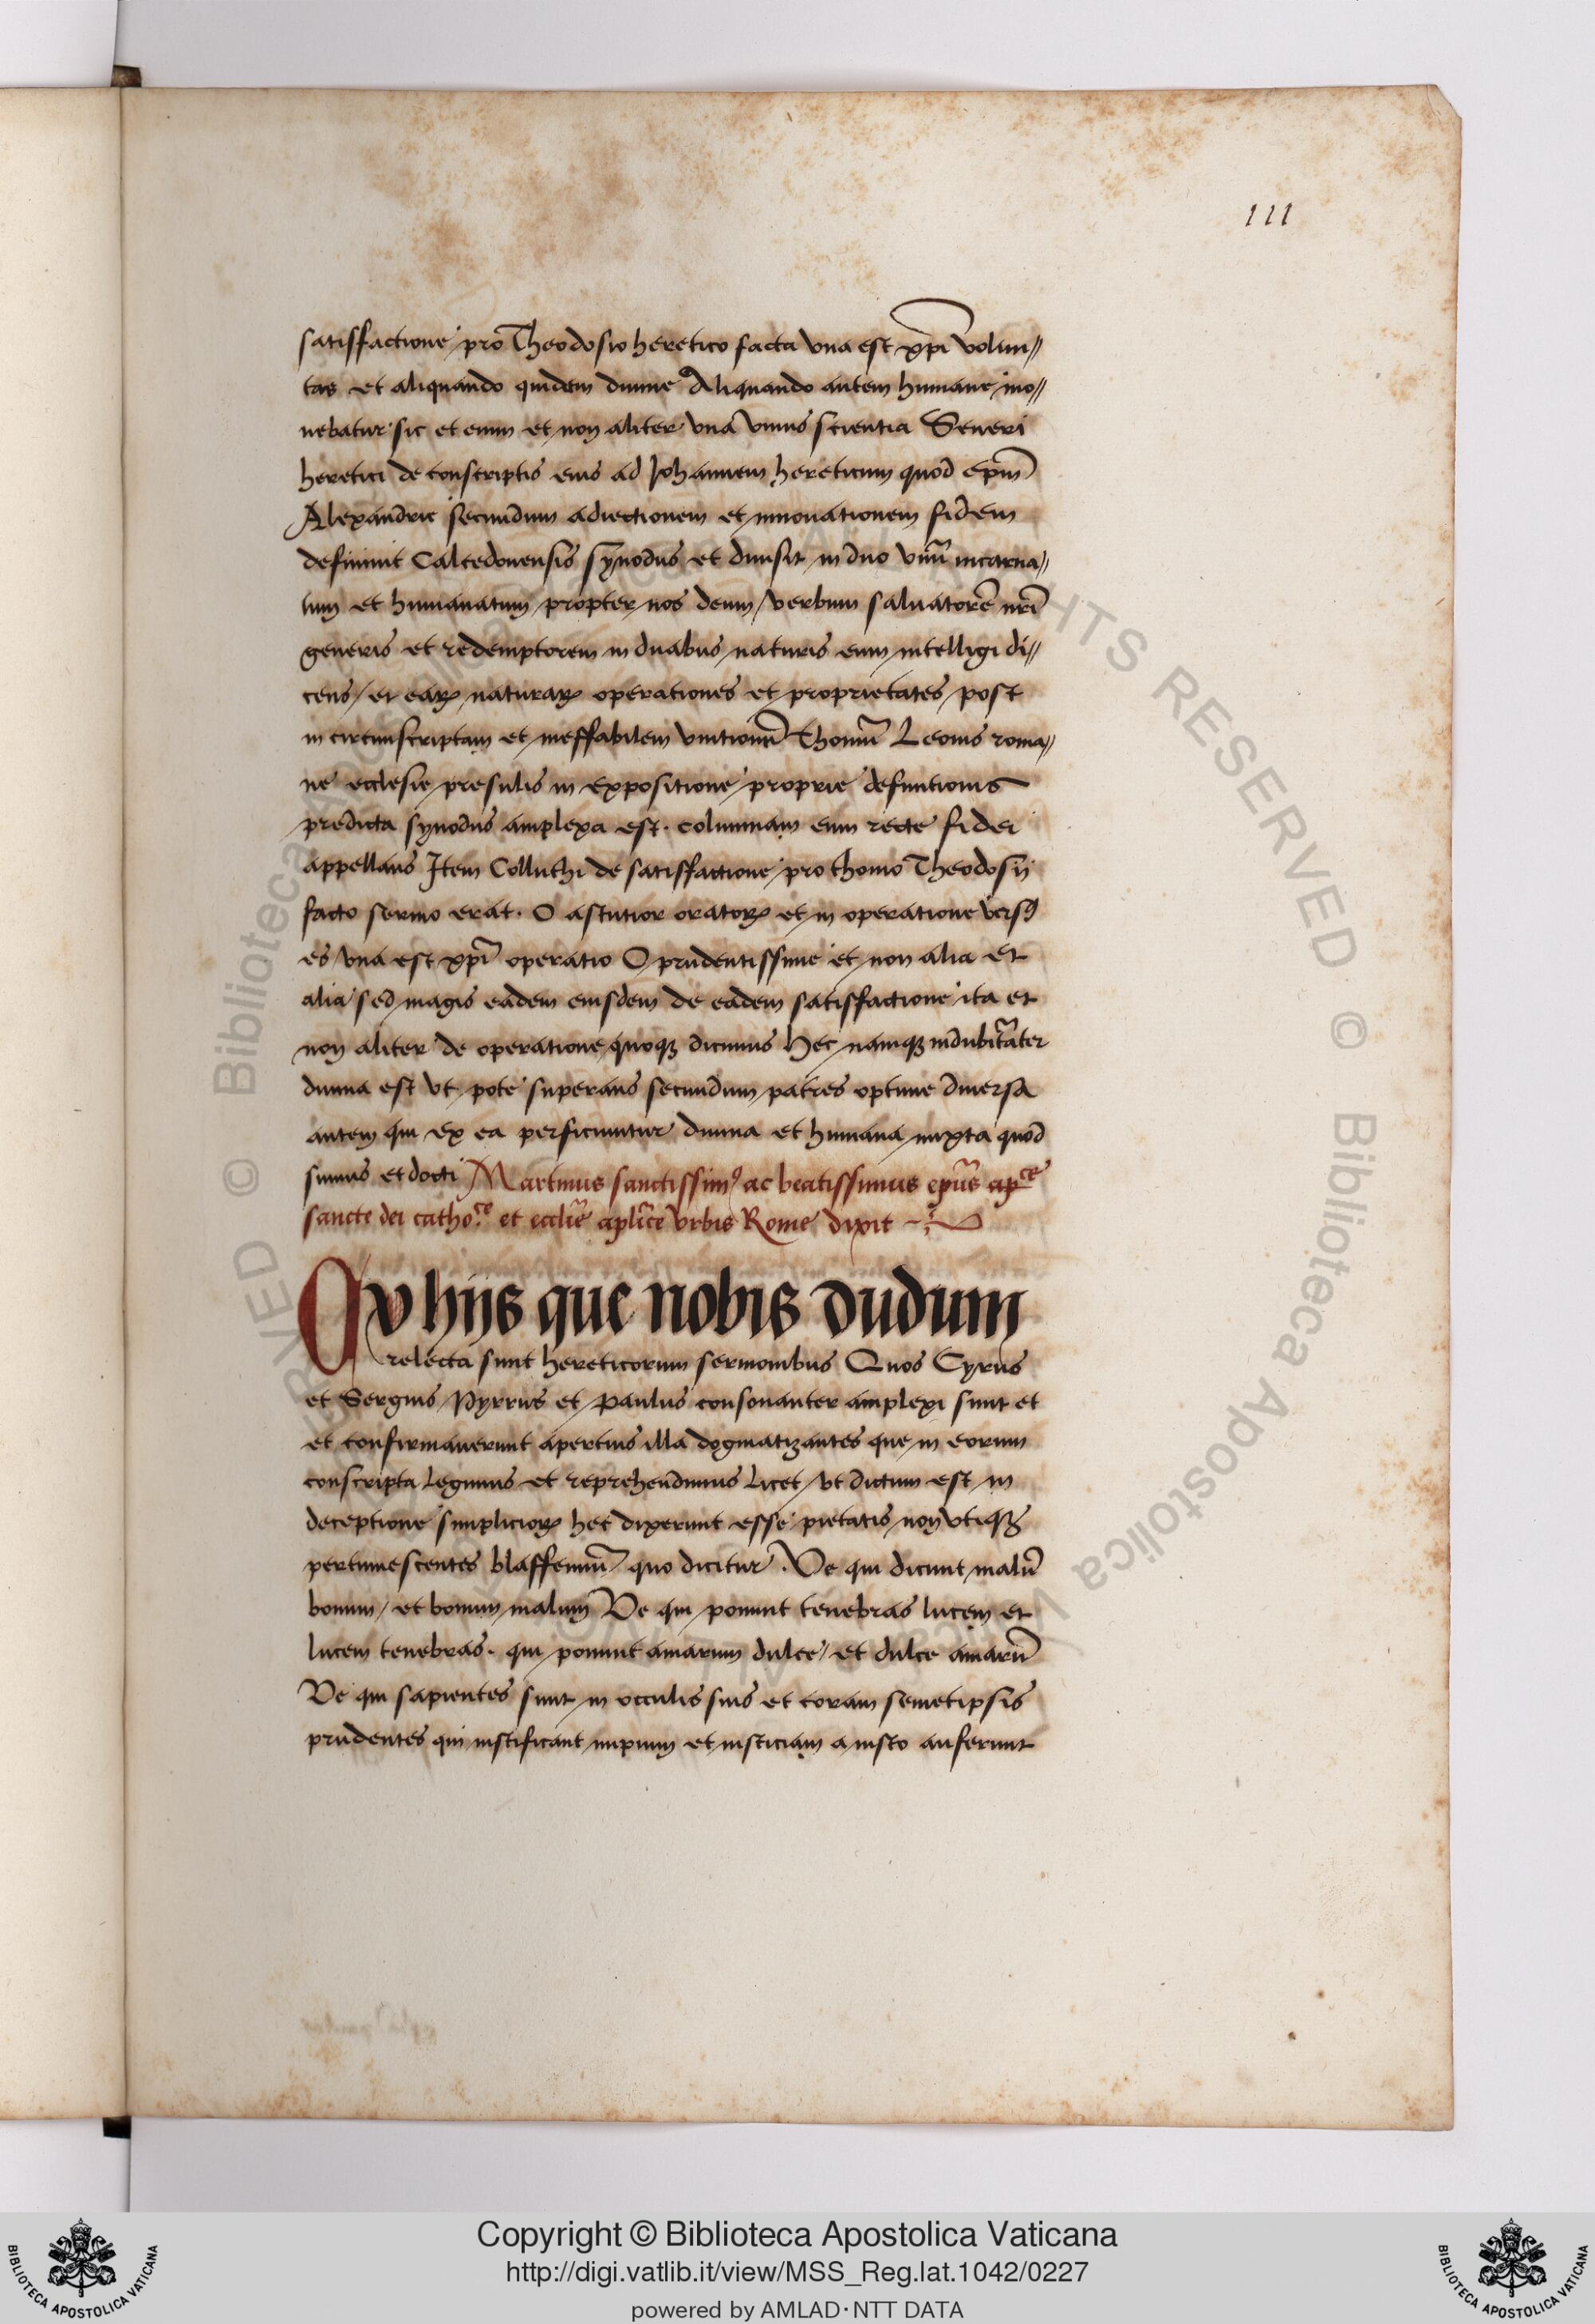 111
satisfactione pro Theodosio heretico facta vna est xp̄i volun//
tas et aliquando quidem diuine Aliquando autem humane mo//
uebatur sic et enim et non aliter vna vnius scientia Seueri
heretici de conscriptis eius ad Johannem hereticum quod ep̄m
Alexandrie secundum adiectionem et innouationem fidem
definiuit Calcedonensis synodus et diuisit in duo vnū incarna//
tum et humanatum propter nos deum / verbum saluatorē nr̄i
generis et redemptorem in duabus naturis eum intelligi di//
cens / et earꝝ naturarꝝ operationes et proprietates post
in circunscriptam et ineffabilem vnitionē thomū Leonis roma//
ne ecclesie presulis in expositione proprie definitionis
predicta synodus amplexa est. columnam eum recte fidei
appellans Item Colluthi de satisfactione pro thomo Theodosij
facto sermo erat. O astutior oratorꝝ et in operatione versꝰ
es vna est xp̄i operatio O prudentissime et non alia et
alia sed magis eadem eiusdem de eadem satisfactione ita et
non aliter de operatione quoqꝫ dicimus hec namqꝫ indubitāter
diuina est vt pote superans secundum patres optime diuersa
autem qui ex ea perficiuntur diuina et humana iuxta quod
sumus et docti Martinus sanctissimꝰ ac beatissimus epūs apce
sancte dei catho.ce et eccl̄ie apl̄ice vrbis Rome dixit
Ex hijs que nobis dudum
relecta sunt hereticorum sermonibus Quos Cyrus
et Sergius Pyrrus et Paulus consonanter amplexi sunt et
et confirmauerunt apertius illa dogmatizantes que in eorum
conscripta legimus et reprehendimus licet vt dictum est in
deceptione simpliciorꝝ hec dixerunt esse pietatis non vtiqꝫ
pertimescentes blaffemiū quo dicitur. Ve qui dicunt malū
bonum / et bonum malum Ve qui ponunt tenebras lucem et
lucem tenebras. qui ponunt amarum dulce / et dulce amarū
Ve qui sapientes sunt in occulis suis et coram semetipsis
prudentes qui iustificant impium et iusticiam a iusto auferunt
Copyright © Biblioteca Apostolica Vaticana
http://digi.vatlib.it/view/MSS_Reg.lat.1042/0227
powered by AMLAD·NTT DATA
BIBLIOTECA APOSTOLICA VATICANA
BIBLIOTECA APOSTOLICA VATICANA